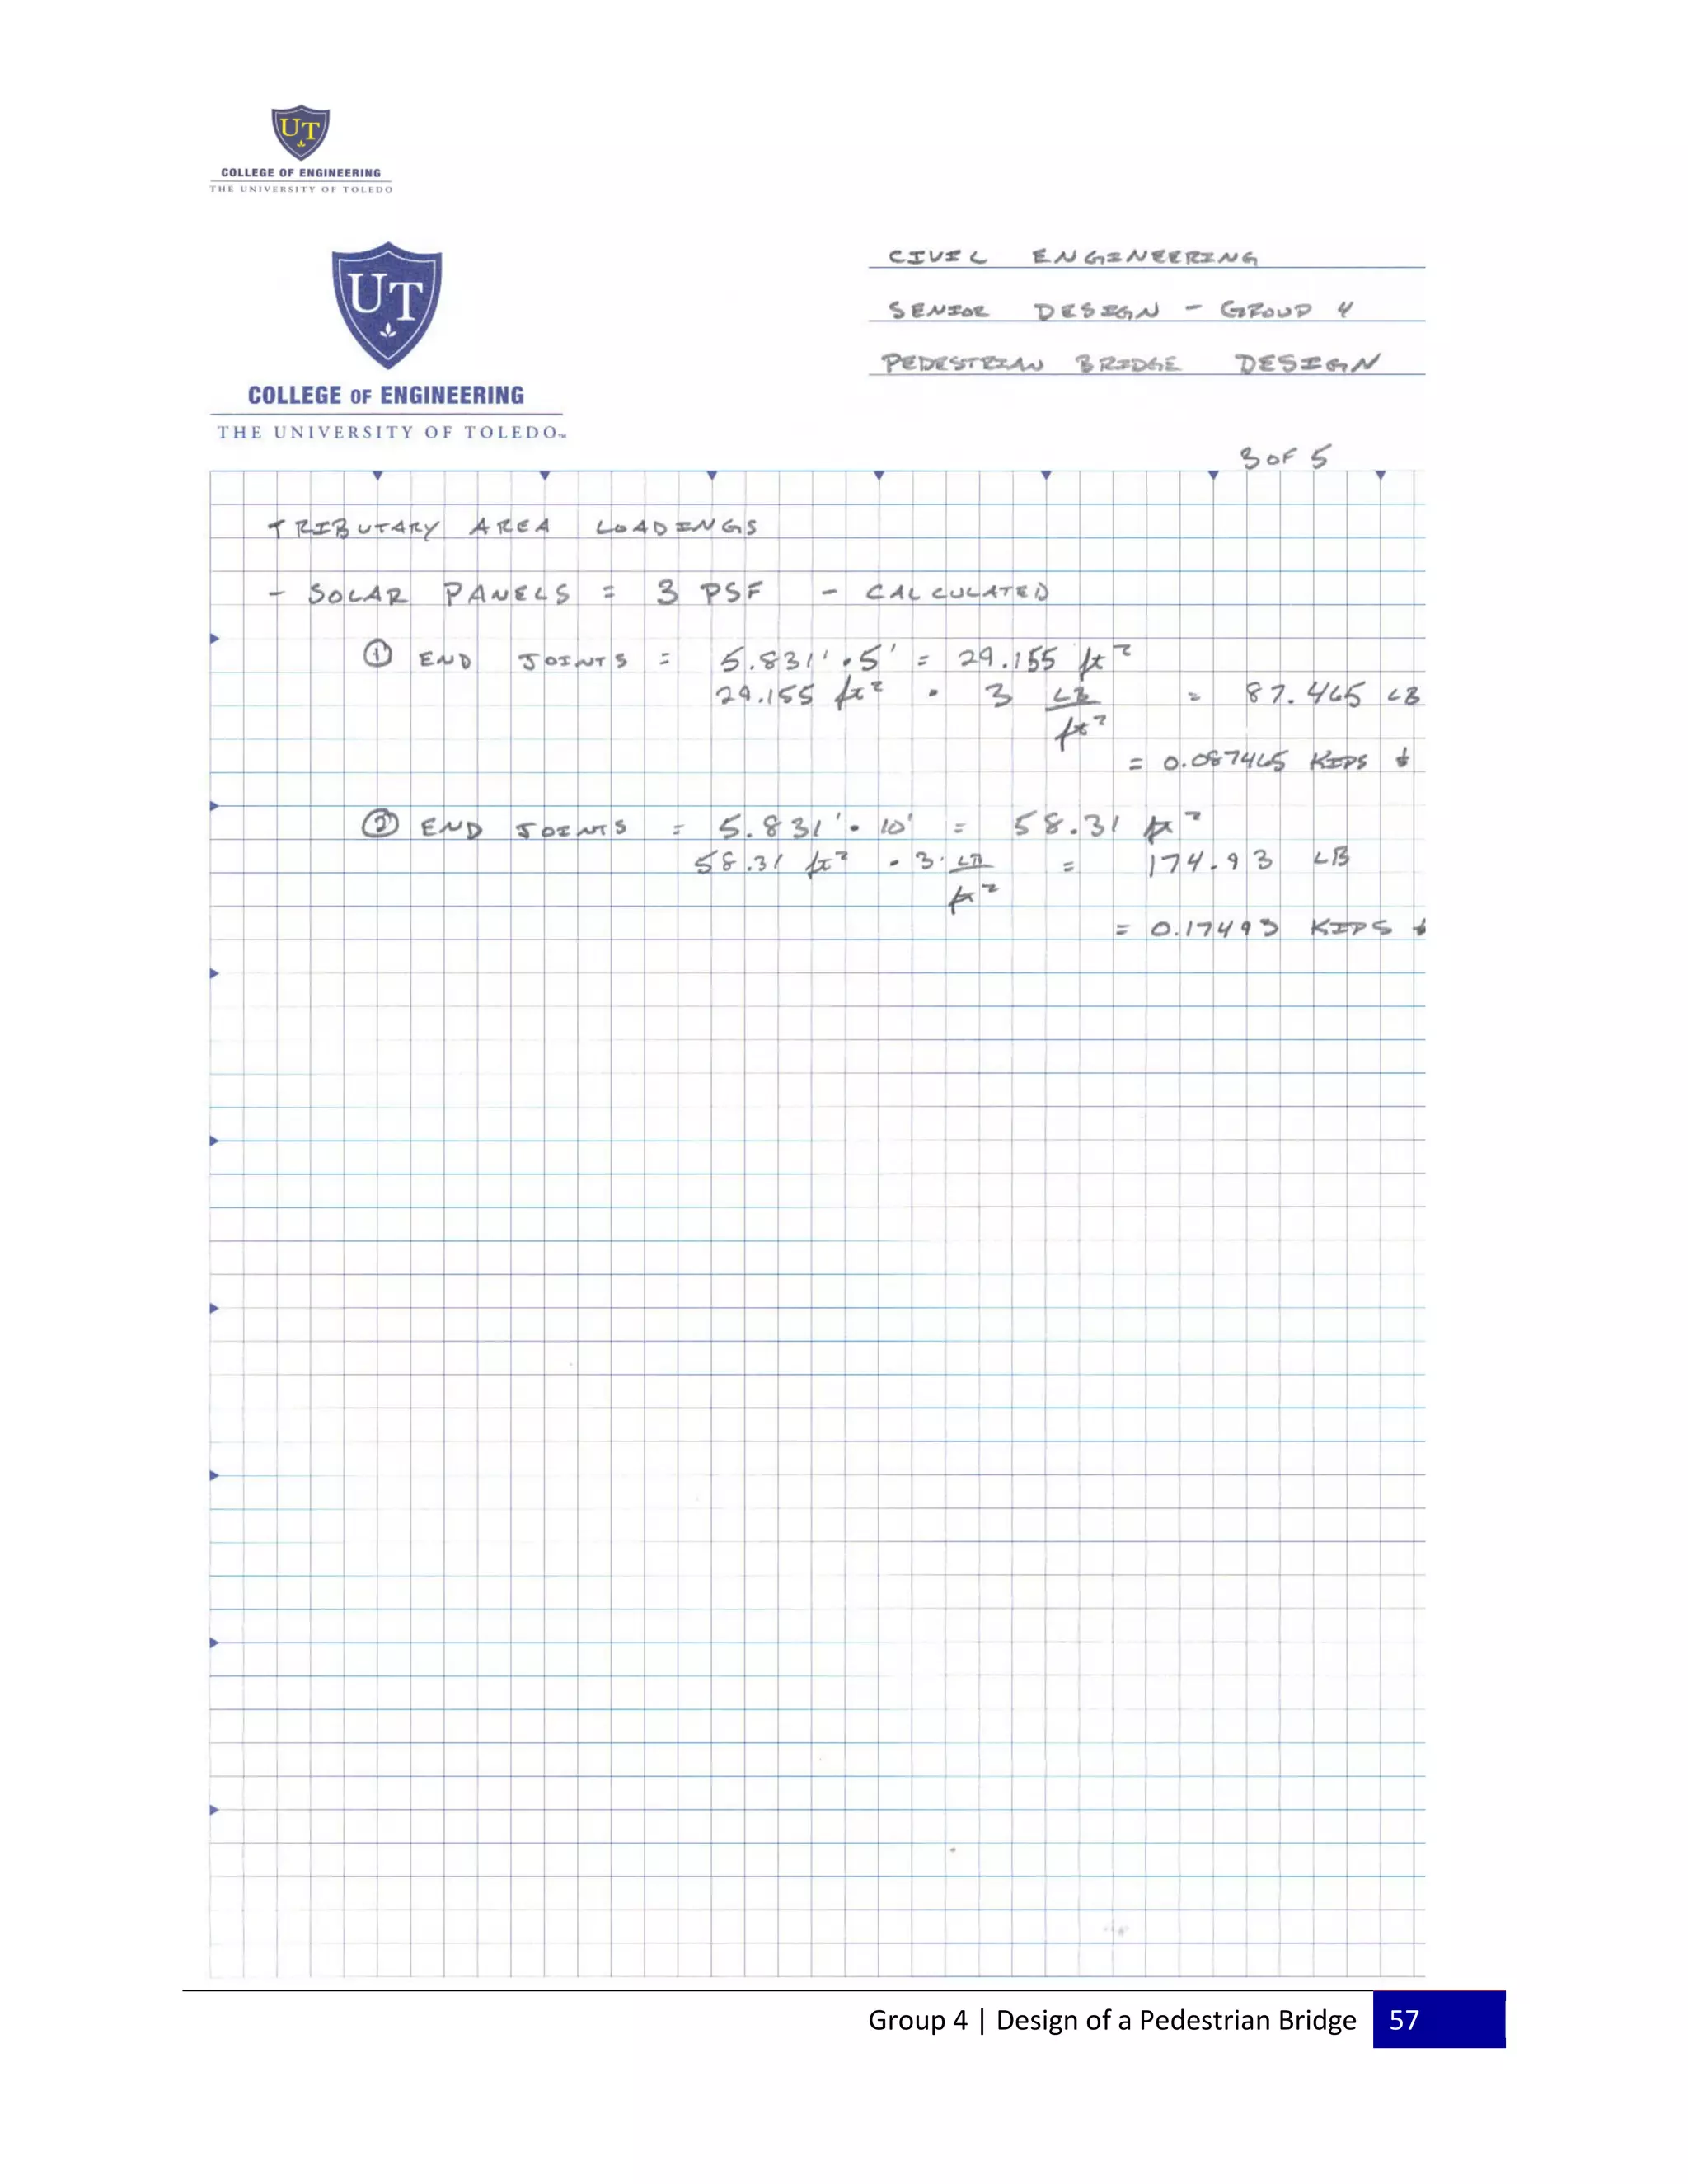 UT
COLLEGE OF ENGINEERING
THE UNIVERSITY OF TOLEDO
UT
COLLEGE OF ENGINEERING
THE UNIVERSITY OF TOLEDO™
CIVIL ENGINEERING
SENIOR DESIGN - GROUP 4
PEDESTRIAN BRIDGE DESIGN
3 OF 5
TRIBUTARY AREA LOADINGS
- SOLAR PANELS = 3 PSF - CALCULATED
① END JOINTS = 5.831' • 5' = 29.155 ft²
29.155 ft² • 3 LB/ft² = 87.465 LB
= 0.087465 KIPS ↓
② END JOINTS = 5.831' • 10' = 58.31 ft²
58.31 ft² • 3 LB/ft² = 174.93 LB
= 0.17493 KIPS ↓
Group 4 | Design of a Pedestrian Bridge 57